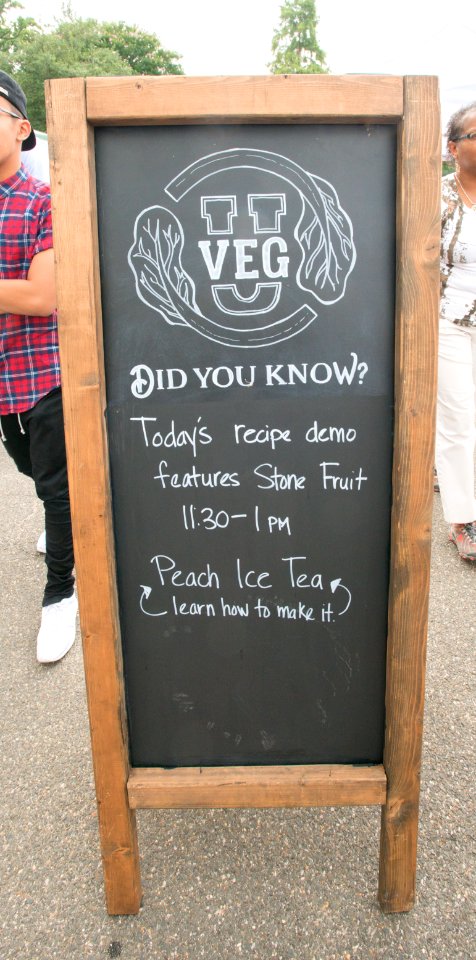 U
VEG
DID YOU KNOW?
Today's recipe demo
features Stone Fruit
11:30-1 PM
Peach Ice Tea
learn how to make it.